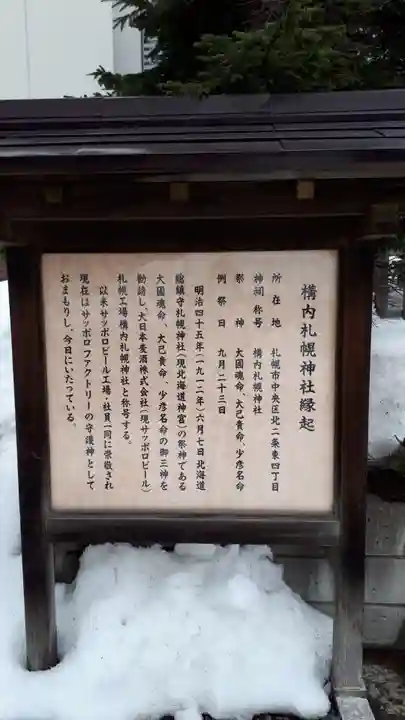 構内札幌神社縁起
所在地 札幌市中央区北二条東四丁目
神祠称号 構内札幌神社
祭神 大國魂命、大己貴命、少彦名命
例祭日 九月二十三日
明治四十五年(一九一二年)六月七日北海道
総鎮守札幌神社(現北海道神宮)の祭神である
大國魂命、大己貴命、少彦名命の御三神を
勧請し、大日本麦酒株式会社(現サッポロビール)
札幌工場構内札幌神社と称号する。
以来サッポロビール工場、社員一同に崇敬され
現在はサッポロファクトリーの守護神として
おまもりし、今日にいたっている。